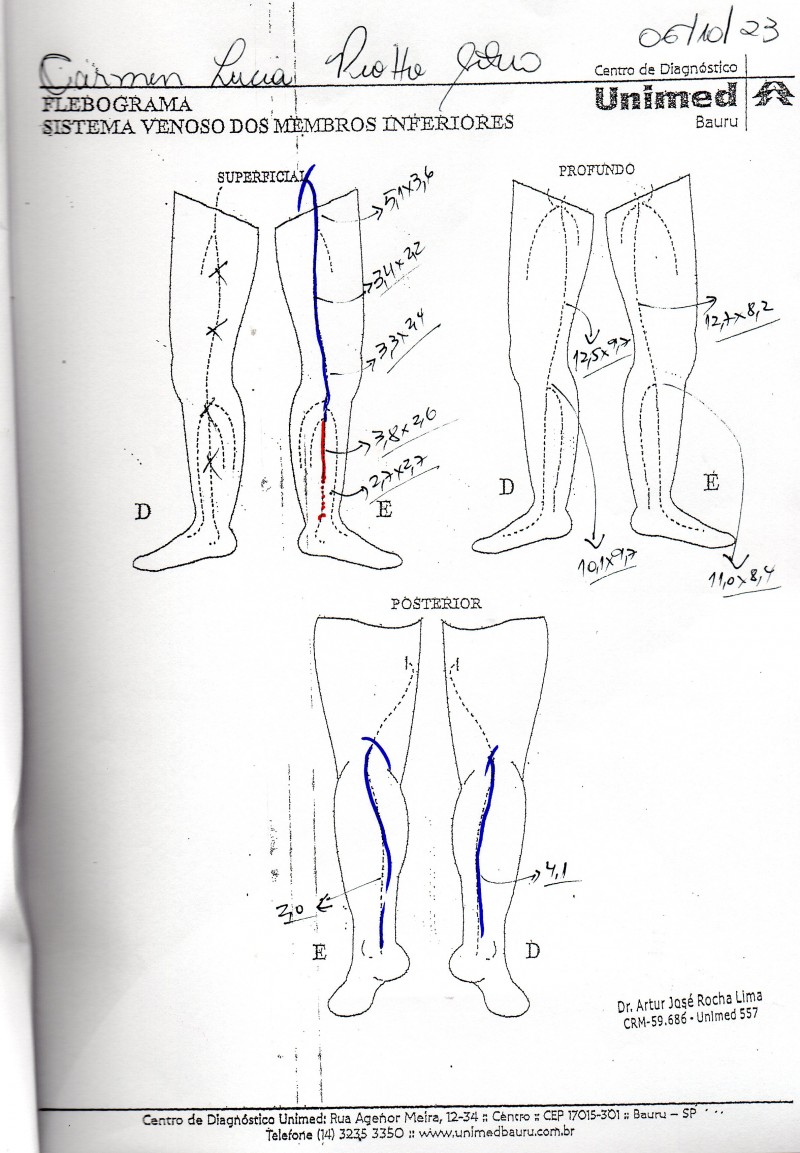 06/10/23
Carmen Lucia
Centro de Diagnóstico
Unimed
Bauru
FLEBOGRAMA
SISTEMA VENOSO DOS MEMBROS INFERIORES
SUPERFICIAL
PROFUNDO
5,1x3,6
3,4x2,2
3,3x2,4
3,8x2,6
2,7x2,7
D
E
12,5x9,7
12,7x8,2
D
E
10,1x9,7
11,0x8,4
POSTERIOR
4,1
E
D
Dr. Artur José Rocha Lima
CRM-59.686 - Unimed 557
Centro de Diagnóstico Unimed: Rua Agenor Meira, 12-34 :: Centro :: CEP 17015-301 :: Bauru – SP
Telefone (14) 3235 3350 :: www.unimedbauru.com.br